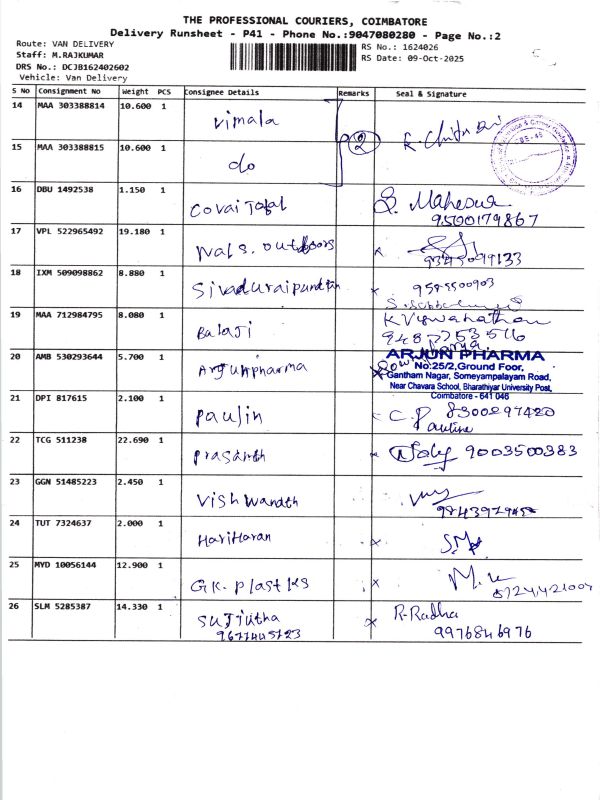 THE PROFESSIONAL COURIERS, COIMBATORE
Delivery Runsheet - P41 - Phone No.:9047080280 - Page No.:2
Route: VAN DELIVERY
Staff: M.RAJKUMAR
DRS No.: DCJB162402602
Vehicle: Van Delivery
RS No.: 1624026
RS Date: 09-Oct-2025
S No Consignment No Weight PCS Consignee Details Remarks Seal & Signature
14 MAA 303388814 10.600 1 Vimala
2
15 MAA 303388815 10.600 1 do
16 DBU 1492538 1.150 1 Covai Total S. Maheswa
9500179867
17 VPL 522965492 19.180 1 Wals. outdoors x
9345099133
18 IXM 509098862 8.880 1 Sivaduraipundian x 9585500903
19 MAA 712984795 8.080 1 Balaji K Viswanathan
9487753516
20 AMB 530293644 5.700 1 Arjunpharma
ARJUN PHARMA
No:25/2,Ground Foor,
Gantham Nagar, Someyampalayam Road,
Near Chavara School, Bharathiyar University Post,
Coimbatore - 641 046
21 DPI 817615 2.100 1 Paulin C.P 8300297420
Pauline
22 TCG 511238 22.690 1 Prasanth 9003500383
23 GGN 51485223 2.450 1 Vishwandth
24 TUT 7324637 2.000 1 HariHaran x
25 MYD 10056144 12.900 1 G.K. plastks x M.
26 SLM 5285387 14.330 1 Sujiutha x R-Radha
9976846976